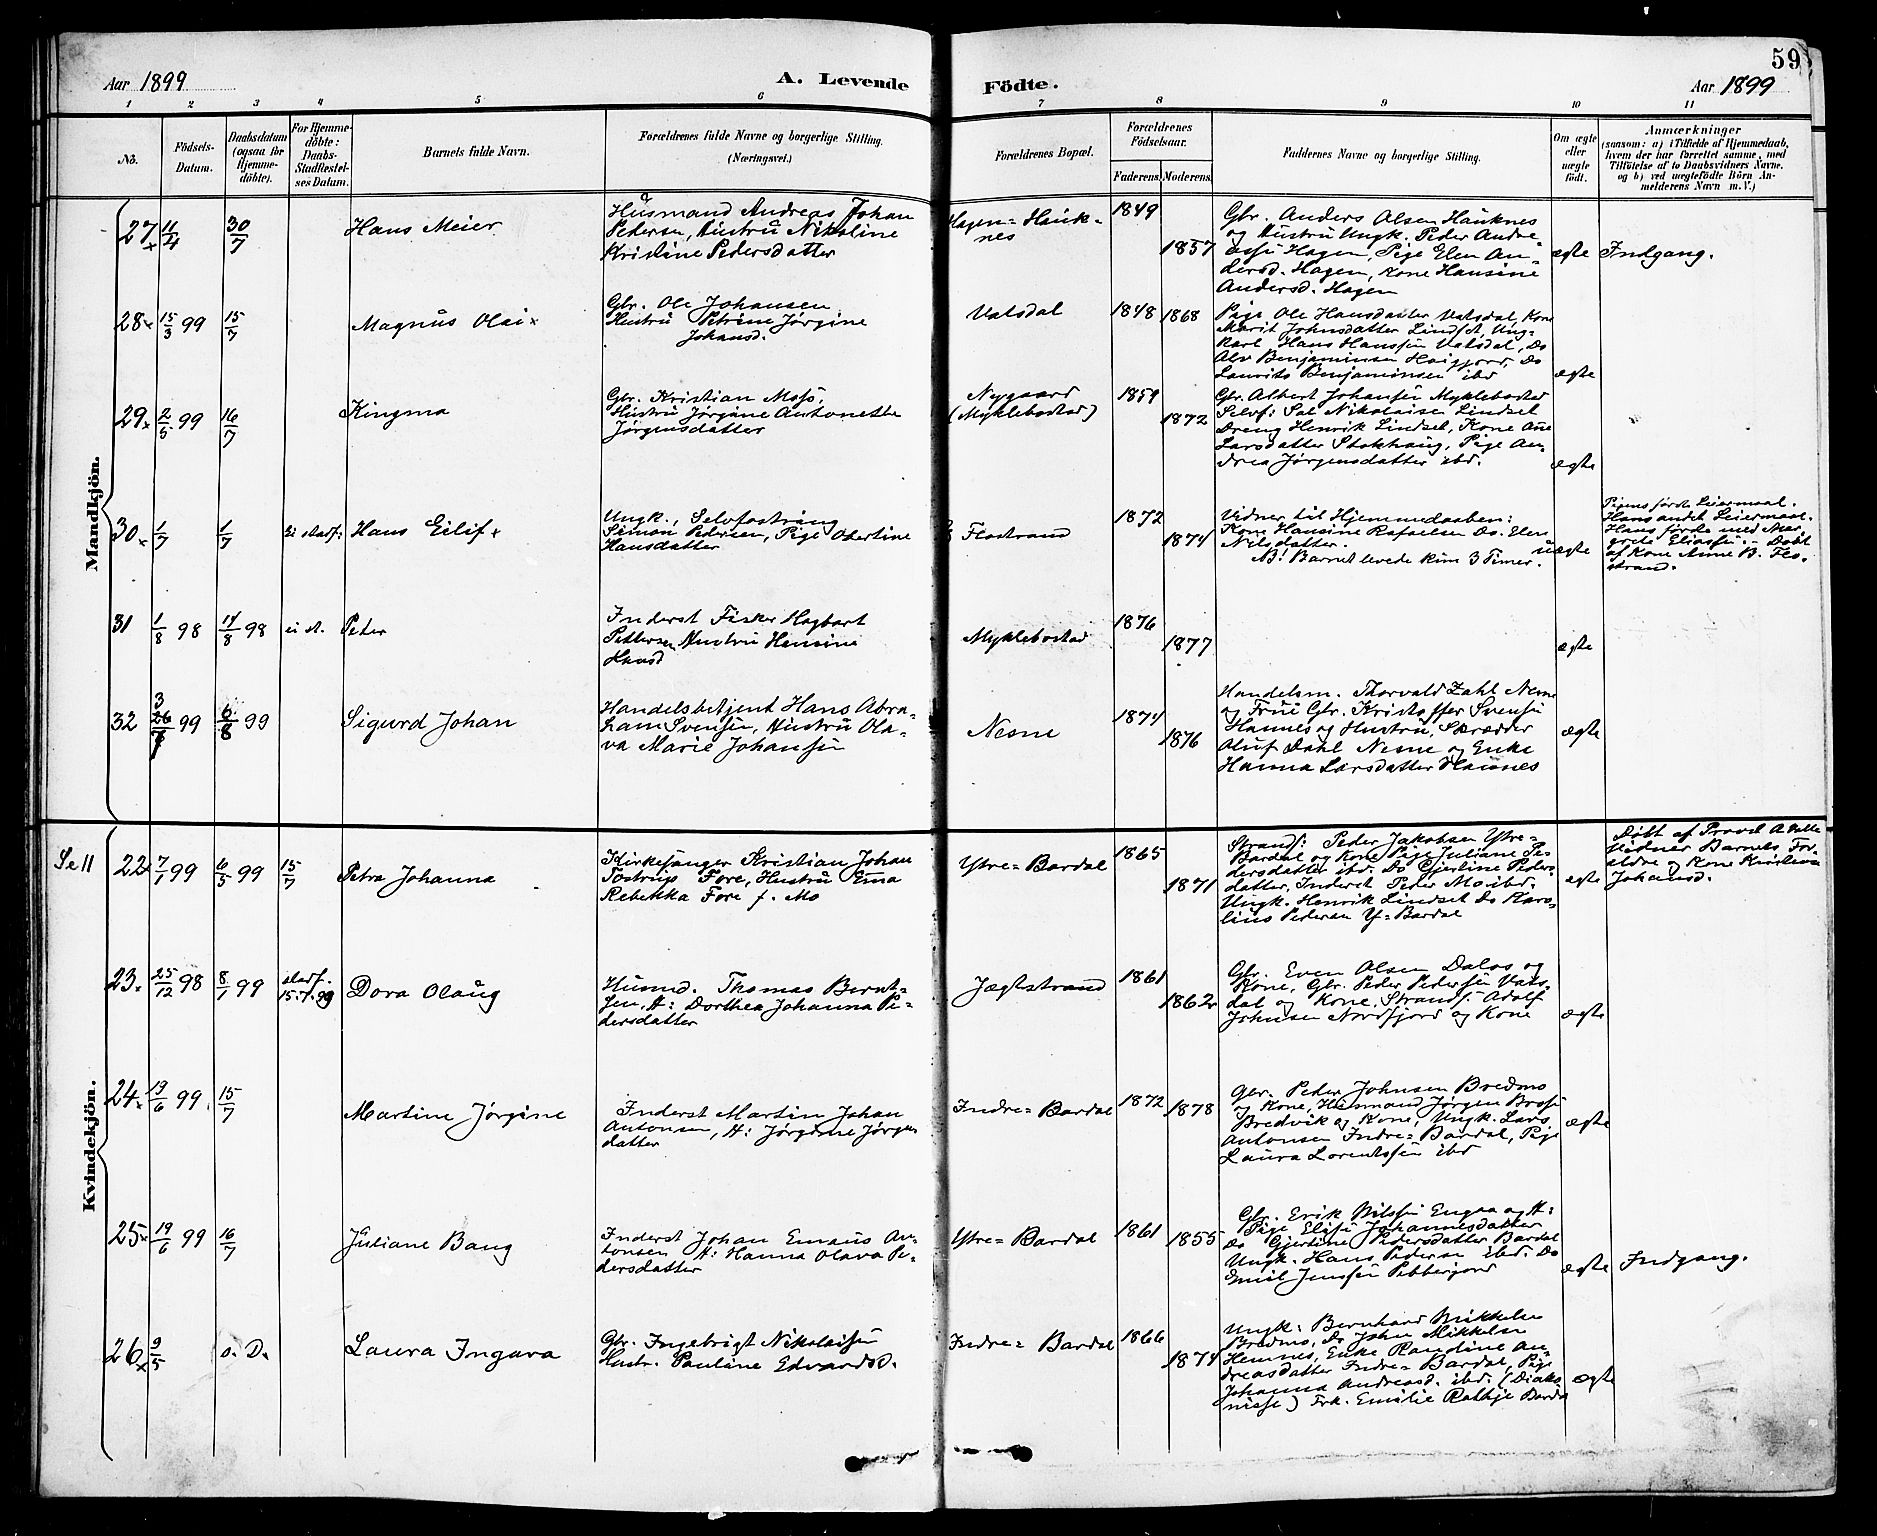 59
Aar 1899
A. Levende
Födte.
Aar 1899
1 2 3 4 5 6 7 8 9 10 11
No.
Födsels-
Datum.
Daabsdatum
(ogsaa for
Hjemme-
döbte).
For Hjemme-
döbte:
Daabs-
Stadfæstel-
ses Datum.
Barnets fulde Navn.
Forældrenes fulde Navne og borgerlige Stilling.
(Næringsvei.)
Forældrenes Bopæl.
Forældrenes
Födselsaar.
Faderens. Moderens.
Faddernes Navne og borgerlige Stilling.
Om ægte
eller
uægte
födt.
Anmærkninger
(saasom: a) i Tilfælde af Hjemmedaab,
hvem der har forrettet samme, med
Tilföielse af to Daabsvidners Navne.
og b) ved uægtefödte Börn An-
melderens Navn m. V.)
Mandkjön.
27 11/4 30/7
Hans Meier
Husmand Andreas Johan
Pedersen, Hustru Nikoline
Kristine Pedersdatter
Hagen = Hauk-
nes
1849
1857
Gbr. Anders Olsen Hauknes
og Hustru Ungk. Peder Andre-
assen Hagen, Pige Elen An-
dersd. Hagen, Kone Hansine
Andersd. Hagen
ægte
Indgang.
28 15/3 99 15/7
Magnus Olai
Gbr. Ole Johansen
Hustru Petrine Jørgine
Johansd.
Valsdal
1848 1868
Pige Ole Hansdatter Valsdal, Kone
Marit Johnsdatter Lindset, Ung-
karl Hans Hanssen Valsdal, Do
Alv Benjaminsen Do
Laurits Benjaminsen ibd
ægte
29 2/5 99 16/7
Kingma
Gbr. Kristian Mosø,
Hustru Jørgine Antonette
Jørgensdatter
Nygaard
(Myklebostad)
1859
1872
Gbr. Albert Johansen Myklebostad
Selvf: Sal Nikolaisen Lindset
Dreng Henrik Lindset, Kone Ane
Larsdatter Stokhaug, Pige An-
drea Jørgensdatter ibd.
ægte
30 1/7 1/7 Ei stadf:
Hans Eilif
Ungk., Selvfostring
Simon Pedersen, Pige Obertine
Hansdatter
Flostrand
1872
1874
Vidner til Hjemmedaaben:
Kone Hansine Rafaelsen Do. Elen
Nilsdatter.
NB! Barnet levede kun 3 Timer.
uægte
Pigens første Leiermaal.
Hans andet Leiermaal.
Hans første med Mar-
grete Eliassen. - Døbt
af Kone Anne B. Flo-
strand.
31 1/8 98 14/8 98 ei st.
Peter
Inderst Fisker Hagbart
Pettersen Hustru Hansine
Hansd
Myklebostad
1876
1877
ægte
32 3 26/7 99 6/8 99
Sigurd Johan
Handelsbetjent Hans Abra-
ham Svensen, Hustru Ola-
va Marie Johansen
Nesne
1874
1876
Handelsm. Thorvald Zahl Nesne
og Frue Gbr. Kristoffer Svensen
Hamnes og Hustru, Skrædder
Oluf Dahl Nesne og Enke
Hanna Larsdatter Hamnes
ægte
Kvindekjön.
Se 11
22 7/1 99 6/5 99 15/7
Petra Johanna
Kirkesanger Kristian Johan
Tostrup Fore, Hustru Ema
Rebekka Fore f. Mo
Ytre = Bardal
1865
1871
Strands: Peder Jakobsen Ytre=
Bardal og Kone Pige Juliane Pe-
dersdatter ibd. Do Gjertine Peders-
datter, Inderst Peder Mo ibd.
Ungk. Henrik Lindset Do Karo-
lius Pedersen Y=Bardal
ægte
Døbt af Provst
Vidner Barnets For-
ældre og Kone Kristine
Johansd.
23 25/12 98 8/1 99 stadf. 15.7.99
Dora Olaug
Husmd. Thomas Bernt-
sen, H: Dorthea Johanna Pe-
dersdatter
Jægtstrand
1861
1862
Gbr. Even Olsen Dalos og
Kone, Gbr. Peder Pedersen Vals-
dal og Kone, Strands: Adolf
Johnsen Nordfjord og Kone
ægte
24 19/6 99 15/7
Martine Jørgine
Inderst Martin Johan
Antonsen, H: Jørgine Jørgens
datter
Indre = Bardal
1872 1878
Gbr. Peder Johnsen Bredmo
og Kone, Husmand Jørgen
Bredvik og Kone, Ungk. Lars
Antonsen Indre=Bardal, Pige
Laura Lorentssen ibd
ægte
25 19/6 99 16/7
Juliane Bang
Inderst Johan Emaus An-
tonsen H: Hanna Olava Pe-
dersdatter
Ytre = Bardal
1861
1855
Gbr. Erik Nilssen Engaa og H:
Pige Elisen Johannesdatter
Do Gjertine Pedersdatter Bardal
Ungk. Hans Pedersen ibd. Do
Emil Jenssen
ægte
Indgang.
26 9/5 o. D.
Laura Ingara
Gbr. Ingebrigt Nikolaisen
Hustr. Pauline Edvardsd.
Indre = Bardal
1866
1874
Ungk: Bernhard Mikkelsen
Bredmo, Do John Mikkelsen
Hemnes, Enke Randine An-
dreasdatter Indre=Bardal, Pige
Johanna Andreasd. ibd. (Diako-
nisse) Frk. Emilie Rathje Bardal
ægte